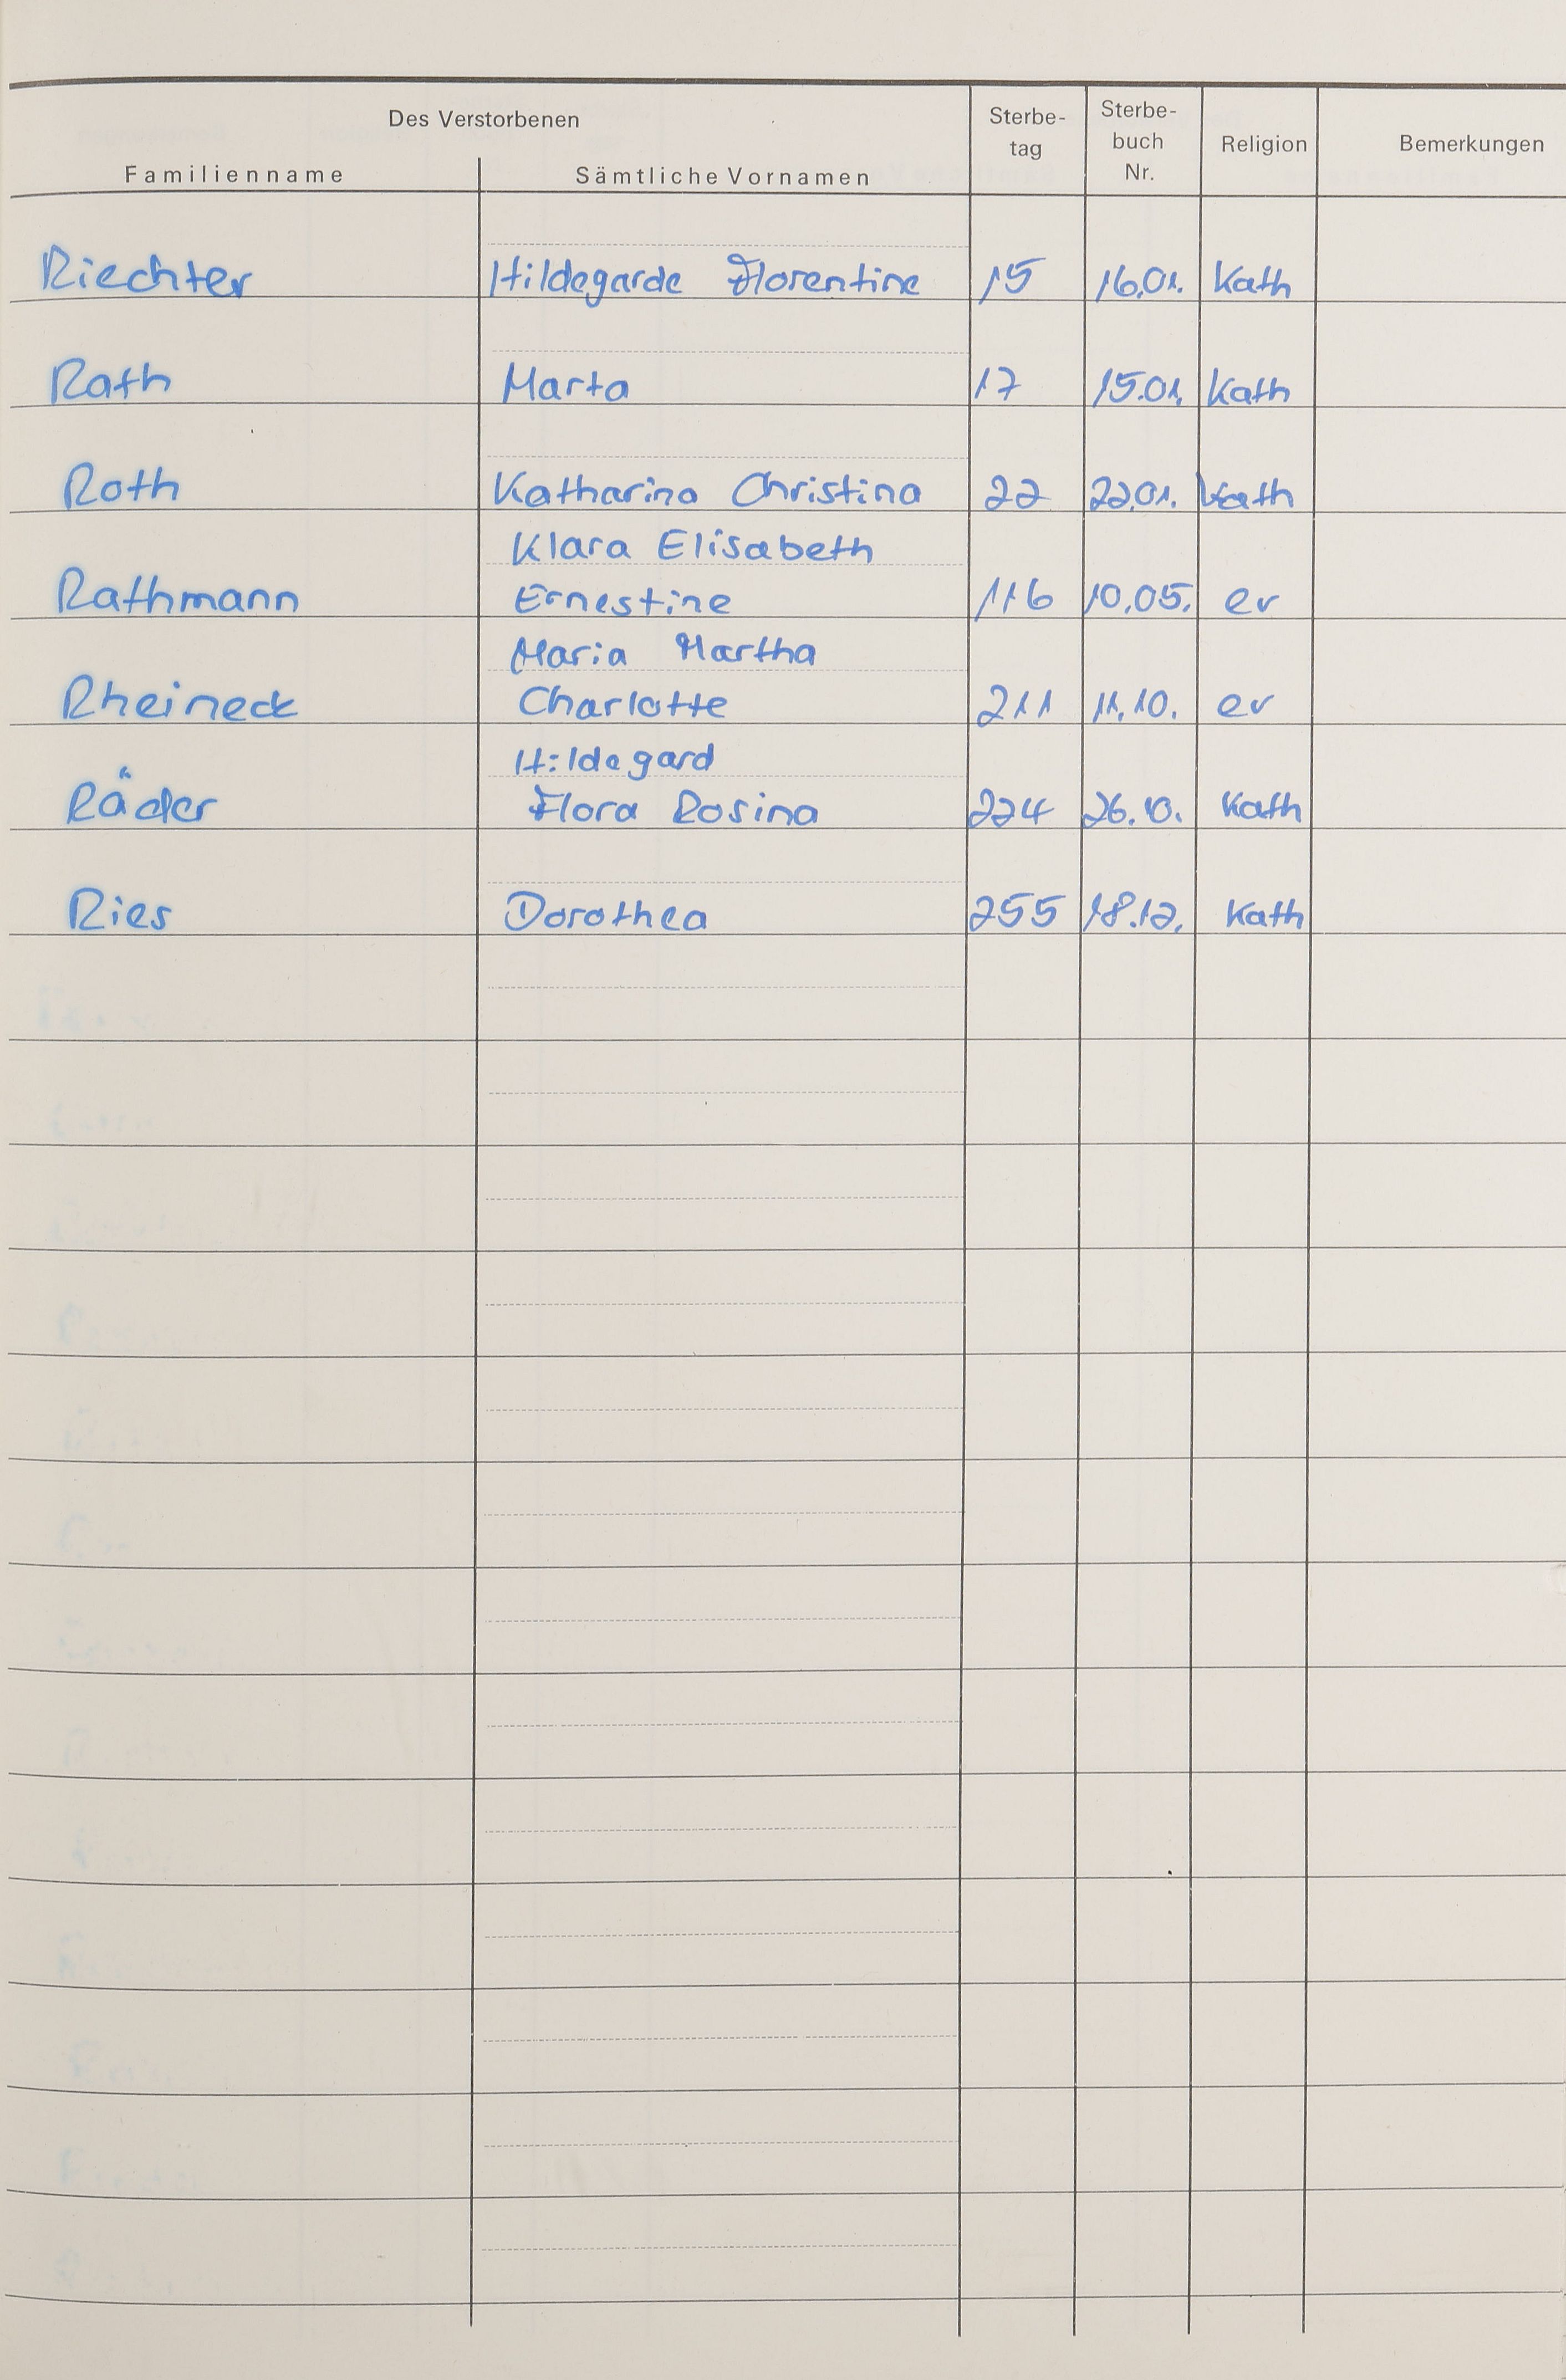 Des Verstorbenen
Familienname Sämtliche Vornamen Sterbe-tag Sterbe-buch Nr. Religion Bemerkungen
Riechter Hildegarde Florentine 15 16.01. Kath
Rath Marta 17 15.01. Kath
Roth Katharina Christina 22 22.01. Kath
Klara Elisabeth
Rathmann Ernestine 116 10.05. ev
Maria Martha
Rheineck Charlotte 211 11.10. ev
Hildegard
Räder Flora Rosina 224 26.10. Kath
Ries Dorothea 255 18.12. Kath